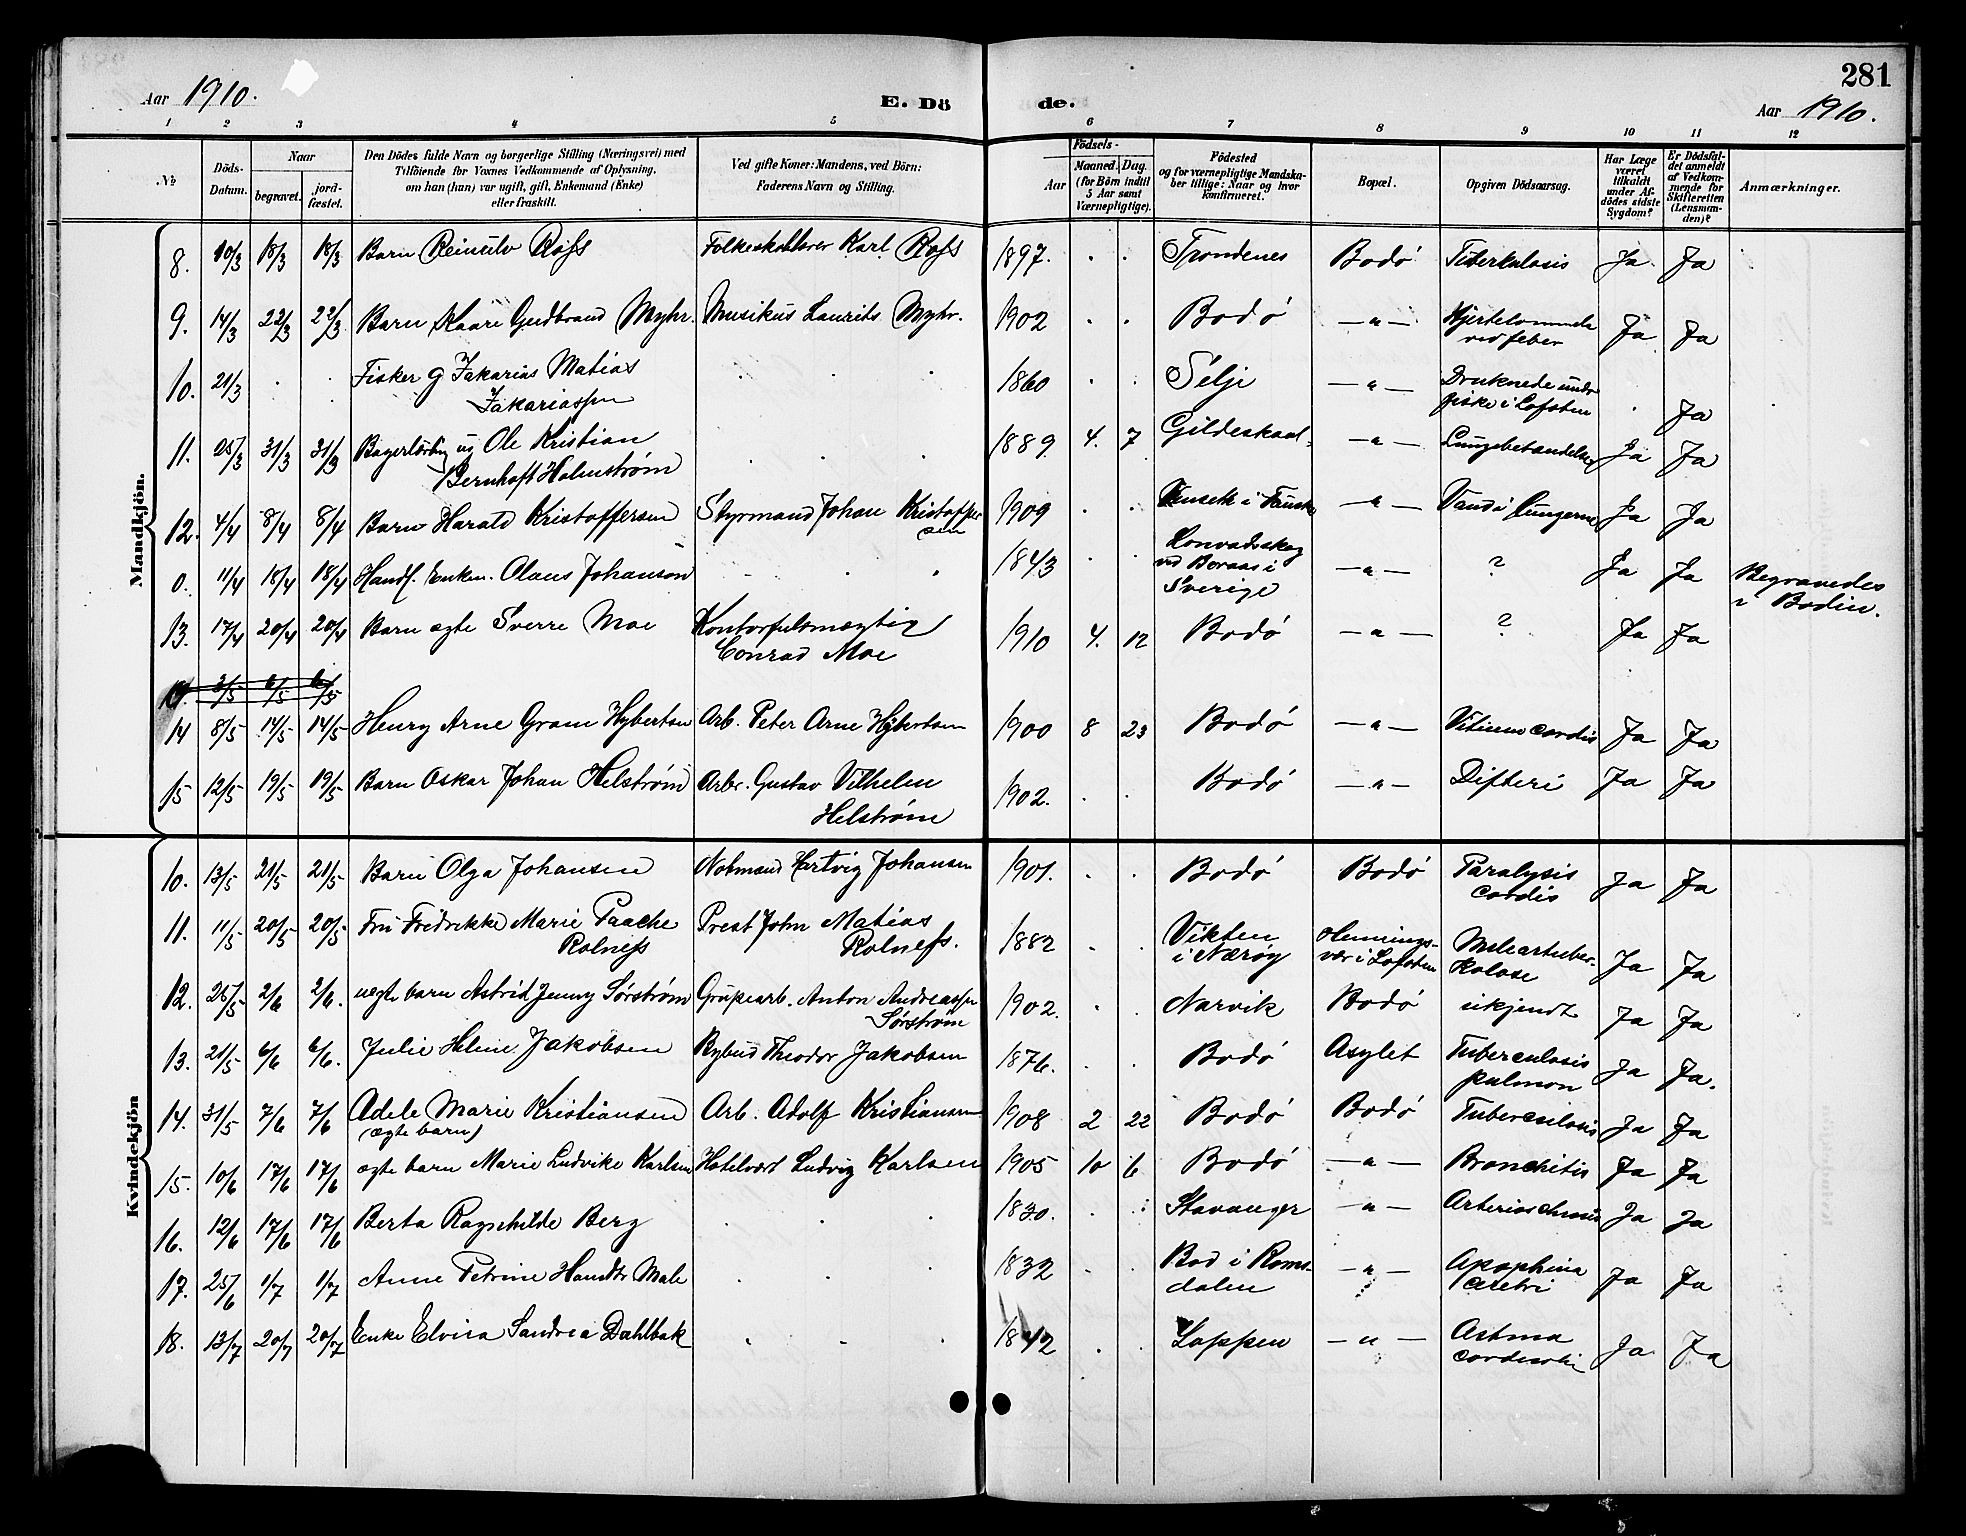 281
Aar 1910. E. Döde. Aar 1910.
1 2 3 4 5 6 7 8 9 10 11 12
№ Döds-Datum. Naar begravet. jord-fæstet. Den Dödes fulde Navn og borgerlige Stilling (Næringsvei) med Tilföiende for Voxnes Vedkommende af Oplysning, om han (hun) var ugift, gift, Enkemand (Enke) eller fraskilt. Ved gifte Koner: Mandens, ved Börn: Faderens Navn og Stilling. Födsels- Aar Maaned. Dag. (for Börn indtil 5 Aar samt Værnepligtige). Födested og for værnepligtige Mandskaber tillige: Naar og hvor konfirmeret. Bopæl. Opgiven Dödsaarsag. Har Læge været tilkaldt under Afdödes sidste Sygdom? Er Dödsfaldet anmeldt af Vedkommende for Skifteretten (Lensmanden)? Anmærkninger.
Mandkjön.
8. 10/3 18/3 18/3 Barn Reinulv Rofs Folkeskolelærer Karl Rofs 1897. Trondenes Bodö Tuberkulosis Ja Ja
9. 14/3 22/3 22/3 Barn Kaare Gudbrand Myhr. Musikus Laurits Myhr. 1902 Bodó —"— Hjertelammelse Ja Ja
ved feber
10. 21/3 Fisker g Zakarias Matias 1860 Selje —"— Druknede under
Zakariassen fiske i Lofoten Ja
11. 25/3 31/3 31/3 Bagerlærling ug Ole Kristian 1889 4. 7 Gildeskaal. —"— Lungebetændelse Ja Ja
Bernhoft Holmstrøm
12. 4/4 8/4 8/4 Barn Harald Kristoffersen Styrmand Johan Kristoffer 1909 i Fauske —"— Vand i Lungerne Ja Ja
sen
0. 11/4 18/4 18/4 Handl. Enkem. Olaus Johanson 1843 —"— ? Ja Ja Begravedes
ved Boraas i
Sverige i Bodin.
13. 17/4 20/4 20/4 Barn ægte Sverre Moe Kontorfuldmægtig 1910 4. 12 Bodó —"— ? Ja Ja
Conrad Moe
3/5 6/5 6/5
14 8/5 14/5 14/5 Henry Arne Gram Hybertsen Arb. Peter Arne Hybertsen 1900 8 23 Bodó —"— Vitium cordis Ja Ja
15 12/5 19/5 19/5 Barn Oskar Johan Helstrøm Arbr. Gustav Vilhelm 1902. Bodó —"— Difteri Ja Ja
Helstrøm
Kvindekjön
10. 13/5 21/5 21/5 Barn Olga Johansen Notmand Hartvig Johansen 1901. Bodó Bodó Paralysis Ja Ja
cordis
11. 11/5 20/5 20/5 Fru Fredrikke Marie Paache Prest John Matias 1882 Vikten Hennings- Ja Ja
Rolnefs Rolnefs. i Nærøy vær i Lofoten
12. 26/5 2/6 2/6. uegte barn Astrid Jenny Sørstrøm Grubearb. Anton Andreassen 1902. Narvik Bodó ukjendt Ja Ja
Sørstrøm
13. 21/5 6/6 6/6. Julie Heline Jakobsen Bybud Theodor Jakobsen 1876. Bodó Asylet Tuberculosis Ja Ja.
pulmon
14. 31/5 7/6 7/6 Adele Marie Kristiansen Arb. Adolf Kristiansen 1908 2 22 Bodó Bodó Tuberculosis Ja Ja
(ægte barn)
15. 10/6 17/6 17/6 ægte barn Marie Ludvike Karlsen Hotelvært Ludvig Karlsen 1905 10 6 Bodó —"— Bronchitis Ja Ja
16. 12/6 17/6 17/6 Berta Ragnhilde Berg 1830. Stavanger —"— Ja Ja
17. 25/6 1/7 1/7 Anne Petrine Male 1832 Bod i Roms- —"— Ja Ja
dalen
18. 13/7 20/7 20/7 Enke Elvira Sandrea Dahlbak 1842 Loppen —"— Astma Ja Ja